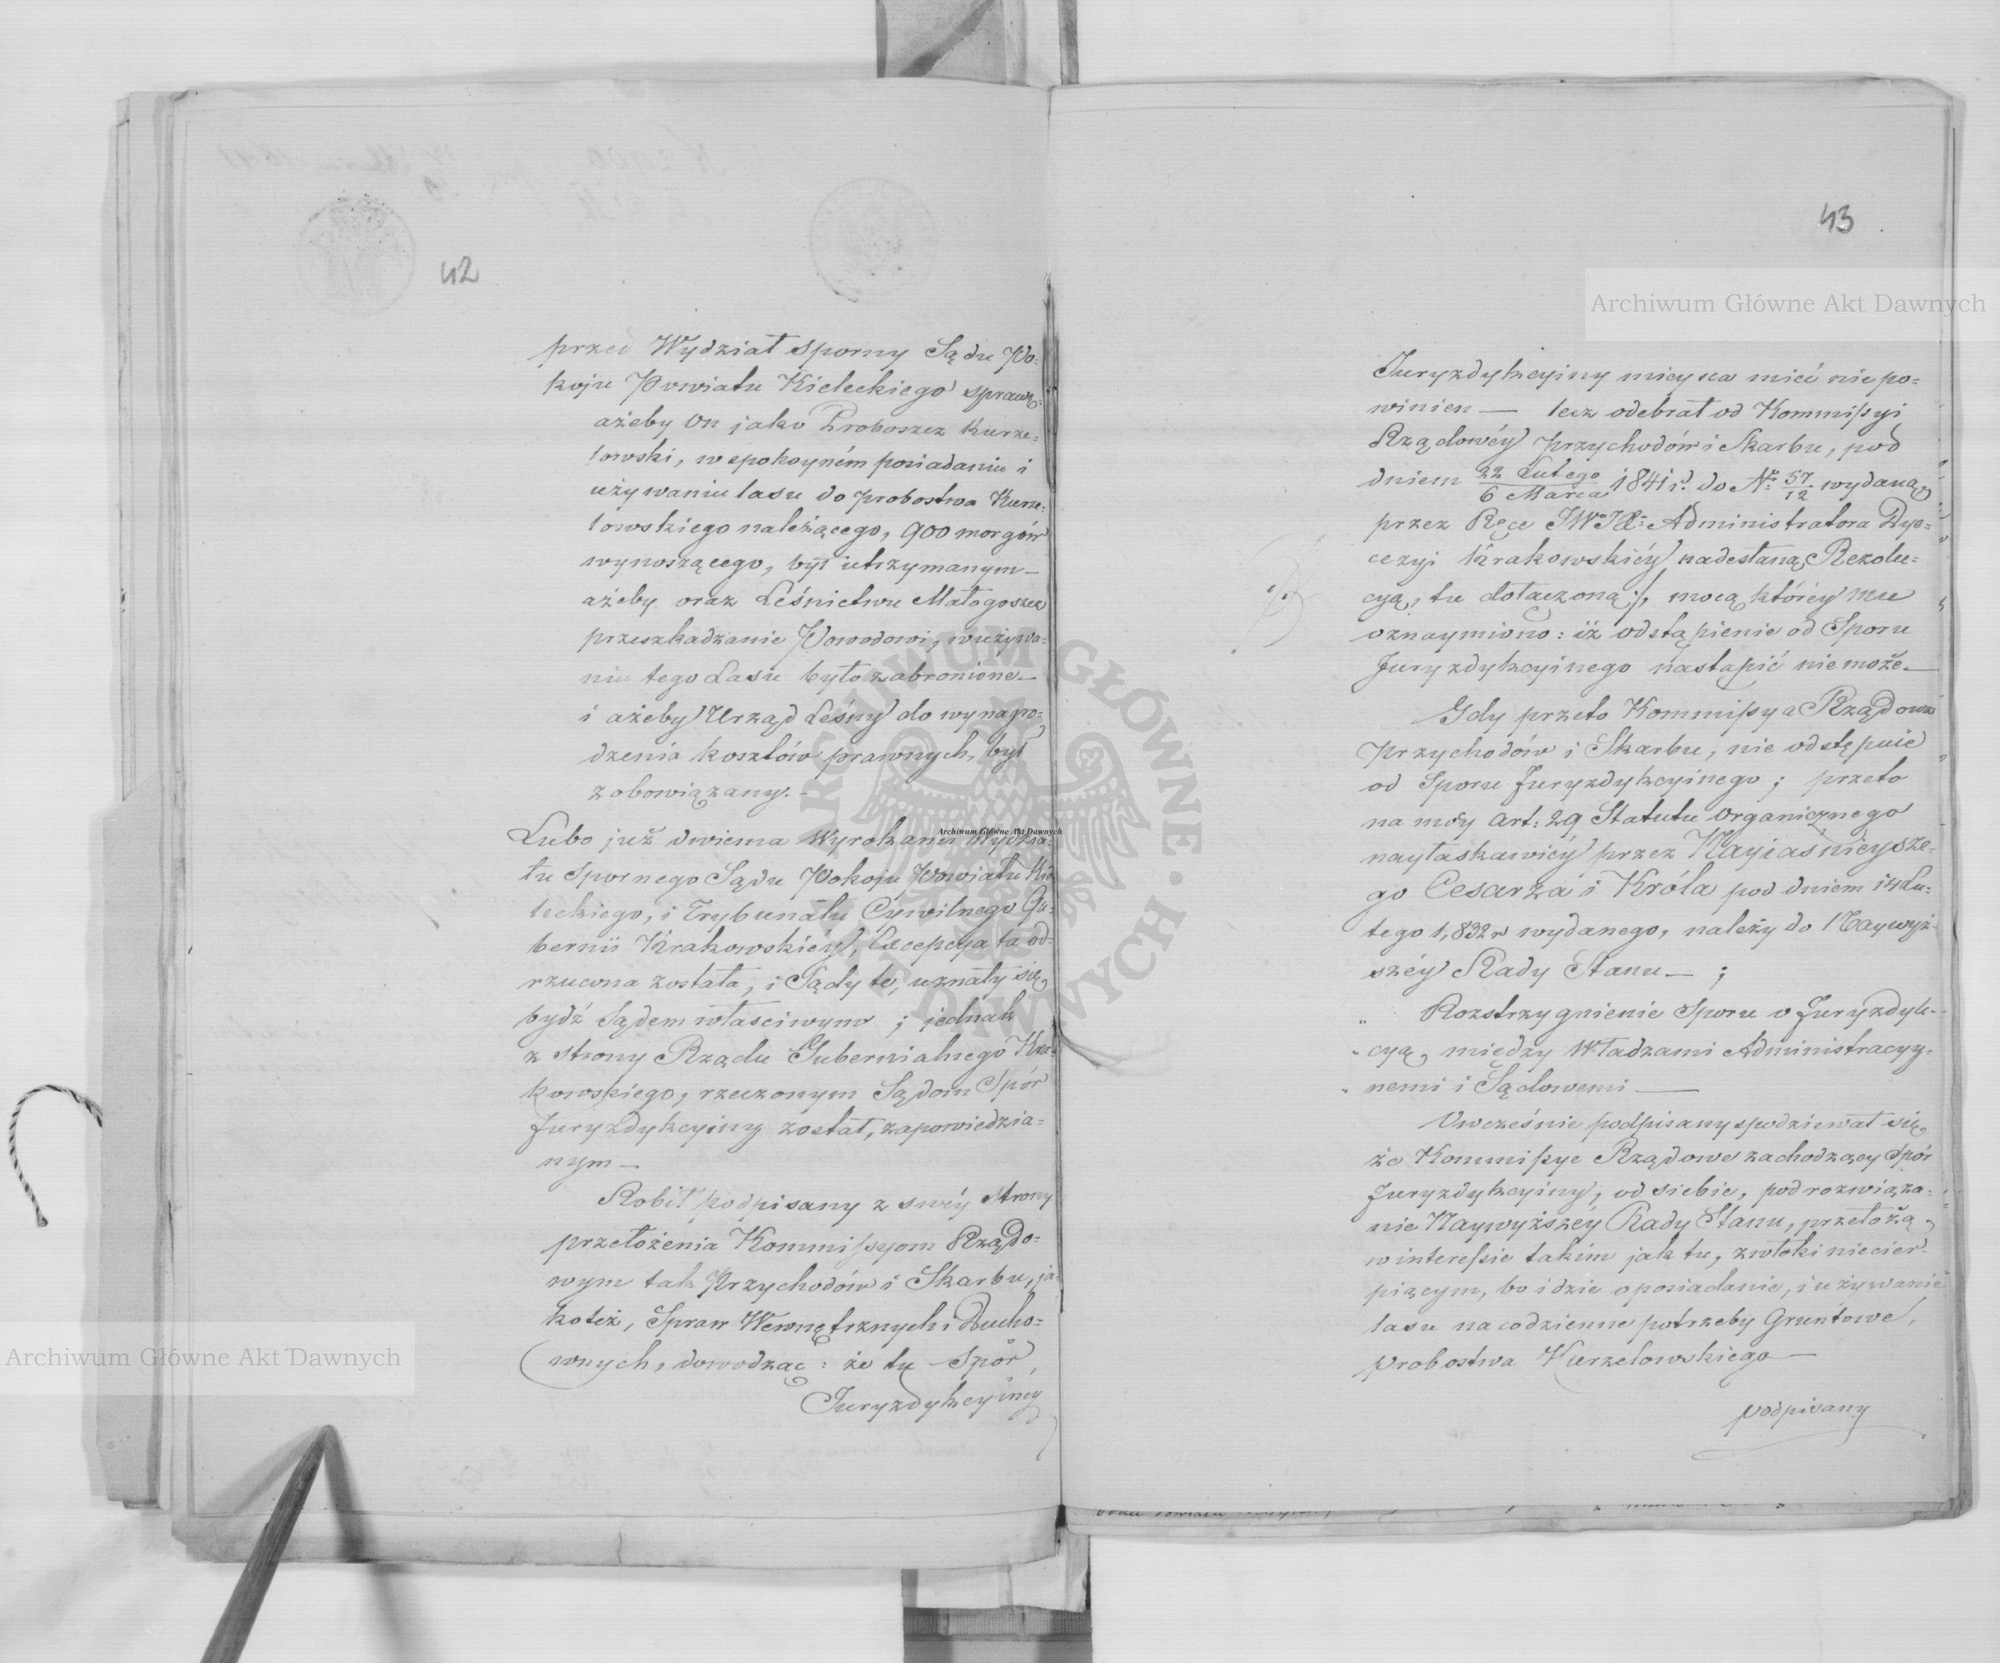 42
przed Wydział Sporny Sądu Po=
koju Powiatu Kieleckiego sprawę,
ażeby On jako Proboszcz Kurze=
lowski, w spokoyném posiadaniu i
używaniu lasu do probostwa Kurze=
lowskiego należącego, 900 morgów
wynoszącego, był utrzymanym —
ażeby oraz Leśnictwu Małogoszcz
przeszkadzanie Powodowi, w używa=
niu tego Lasu było zabronione —
i ażeby Urząd Leśny do wynagro=
dzenia kosztów prawnych, był
zobowiązany. –
Lubo już dwiema Wyrokami Wydzia=
łu Spornego Sądu Pokoju Powiatu Kie
leckiego, i Trybunału Cywilnego Gu=
bernii Krakowskiéy, Excepcya ta od=
rzucona została, i Sądy te, uznały się
bydź Sądem właściwym ; jednak
z strony Rządu Gubernialnego Kra=
kowskiego, rzeczonym Sądom Spór
Juryzdykcyiny został, zapowiedzia=
nym —
Robił podpisany z swéy strony
przełożenia Kommissyom Rządo=
wym tak Przychodów i Skarbu, ja=
koteż, Spraw Wewnętrznych i Ducho=
wnych, dowodząc : że tu Spór
Juryzdykcyiny
43
Juryzdykcyiny mieysca mieć nie po=
winien — lecz odebrał od Kommissyi
Rządowéy Przychodów i Skarbu, pod
dniem 22 Lutego / 6 Marca 1841 r. do No 57/12 wydaną
przez Ręce JWJX: Administratora Dye=
cezyi Krakowskiéy nadesłaną Rezolu=
cyą, tu dołączoną :/, mocą któréy mu
oznaymiono : iż odstąpienie od Sporu
Juryzdykcyinego nastąpić nie może —
Gdy przeto Kommissya Rządowa
Przychodów i Skarbu, nie odstępuie
od Sporu Juryzdykcyinego ; przeto
na mocy Art: 29 Statutu Organicznego
nayłaskawiéy przez Nayiaśnieysze=
go Cesarza i Króla pod dniem 14 Lu=
tego 1,832 r wydanego, należy do Naywyż=
széy Rady Stanu — ;
„ Rozstrzygnienie Sporu o Juryzdyk=
„ cyą, między Władzami Administracyy=
„ nemi i Sądowemi —
Uwcześnie podpisany spodziewał się,
że Kommissye Rządowe zachodzący Spór
Juryzdykcyiny, od siebie, pod rozwiąza=
nie Naywyższéy Rady Stanu, przełożą,
w interessie takim jak tu, zwłoki niecier=
piącym, bo idzie o posiadanie, i używanie
lasu na codzienne potrzeby Gruntowe,
Probostwa Kurzelowskiego —
podpisany
Archiwum Główne Akt Dawnych
Archiwum Główne Akt Dawnych
Archiwum Główne Akt Dawnych
ARCHIWUM GŁÓWNE AKT DAWNYCH